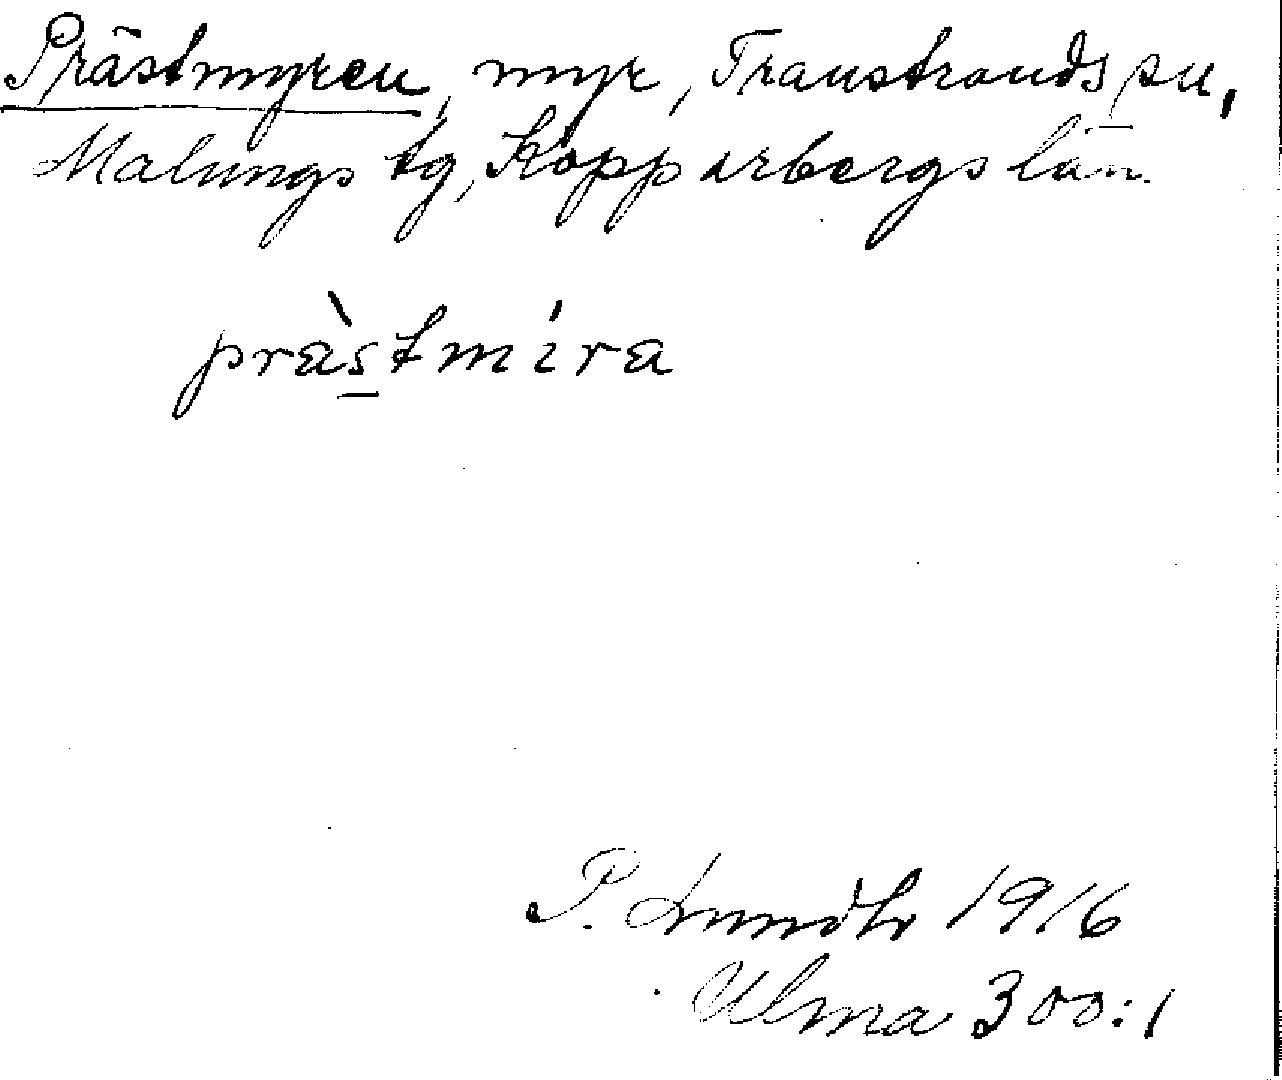 Prästmyren, myr, Transtrands sn,
Malungs tg, Kopparbergs län.
prästmíra
P. Lundh 1916
Ulma 300:1